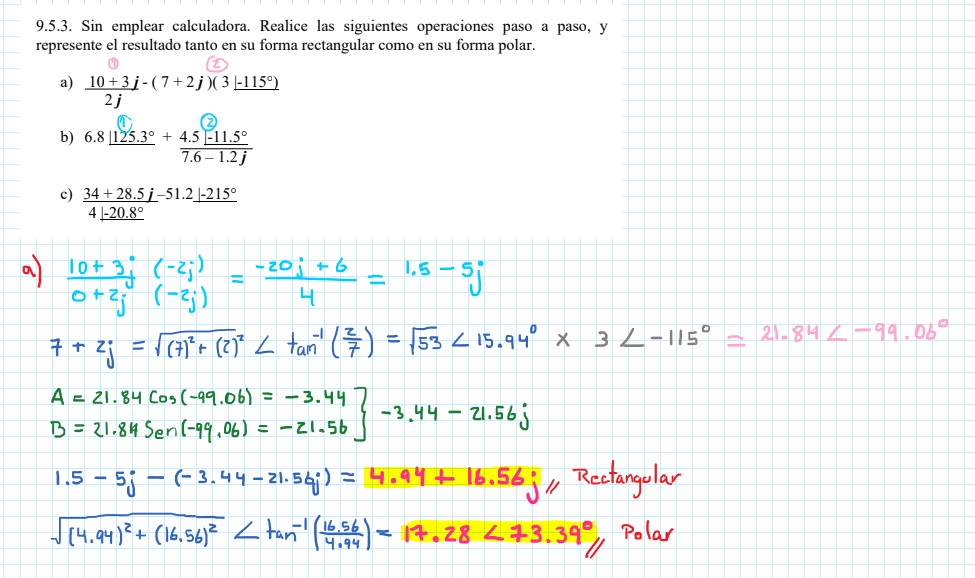 9.5.3. Sin emplear calculadora. Realice las siguientes operaciones paso a paso, y
represente el resultado tanto en su forma rectangular como en su forma polar.
① ②
a) 10 + 3 j - ( 7 + 2 j )( 3 |-115°)
2 j
① ②
b) 6.8 |125.3° + 4.5 |-11.5°
7.6 – 1.2 j
c) 34 + 28.5 j –51.2 |-215°
4 |-20.8°
a) 10 + 3j (-2j) = -20j + 6 = 1.5 - 5j
0 + 2j (-2j) 4
7 + 2j = √(7)² + (2)² ∠ tan⁻¹ (2/7) = √53 ∠ 15.94° × 3 ∠ -115° = 21.84 ∠ -99.06°
A = 21.84 Cos(-99.06) = -3.44
B = 21.84 Sen(-99.06) = -21.56
} -3.44 - 21.56j
1.5 - 5j - (-3.44 - 21.56j) = 4.94 + 16.56j // Rectangular
√(4.94)² + (16.56)² ∠ tan⁻¹ (16.56/4.94) = 17.28 ∠ 73.39° // Polar